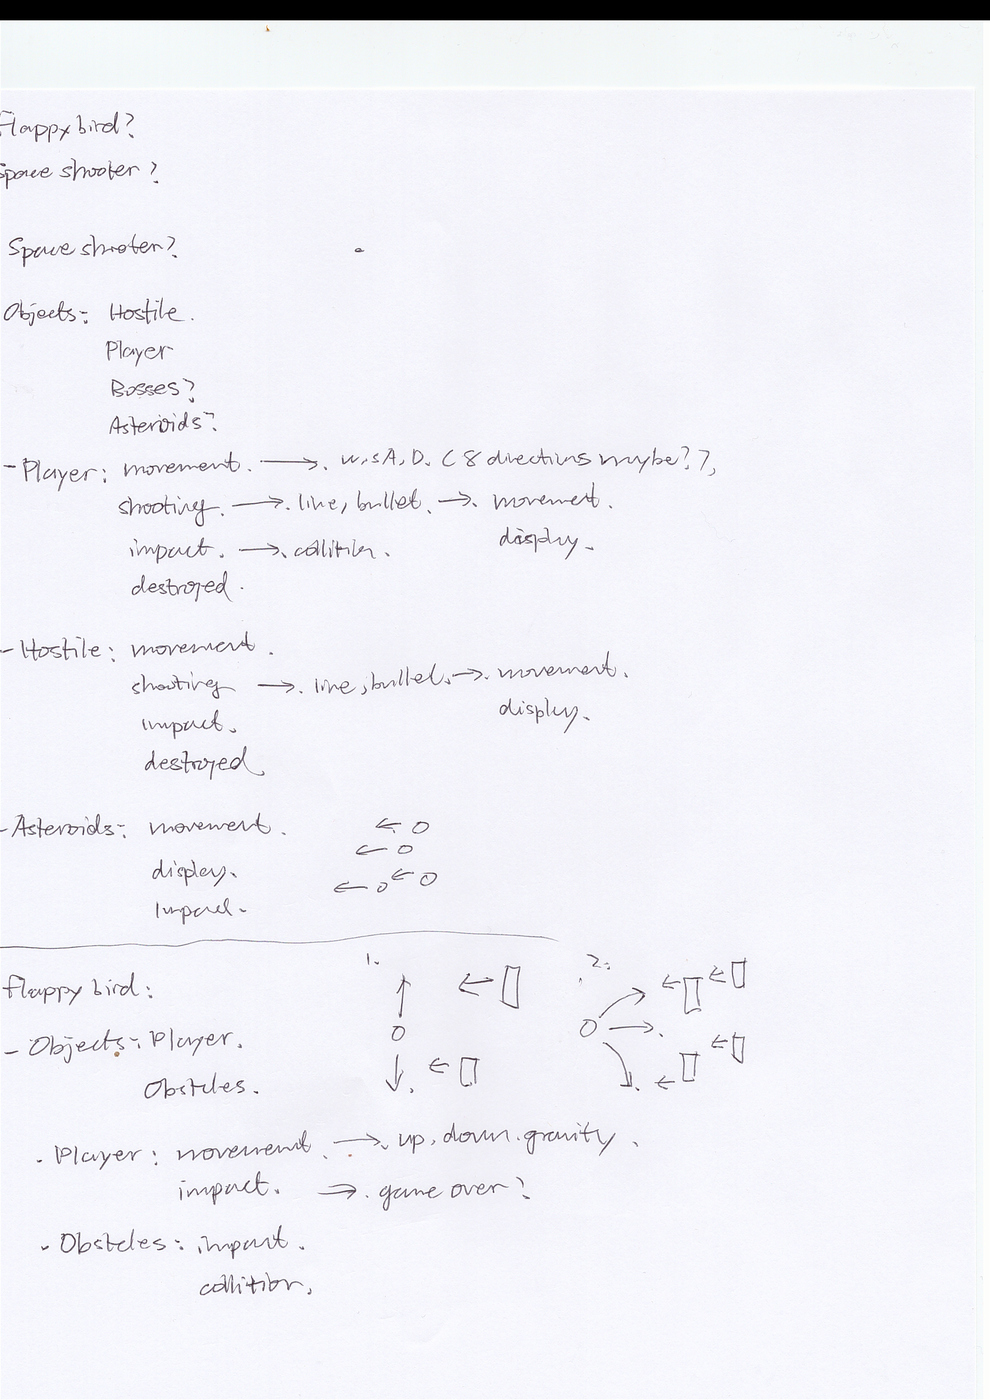 Flappy bird?
Space shooter?
Space shooter?
Objects: Hostile.
Player
Bosses?
Asteroids?
- Player: movement. → W,S,A,D. (8 directions maybe??)
shooting. → line, bullet. → movement.
display.
impact. → collition.
destroyed.
- Hostile: movement.
shooting → line, bullet. → movement.
display.
impact.
destroyed.
- Asteroids: movement.
display.
Impact.
1. 2.
flappy bird:
- Objects: Player.
Obstcles.
- Player: movement. → up, down. gravity.
impact. → game over?
- Obstcles: impact.
collition.